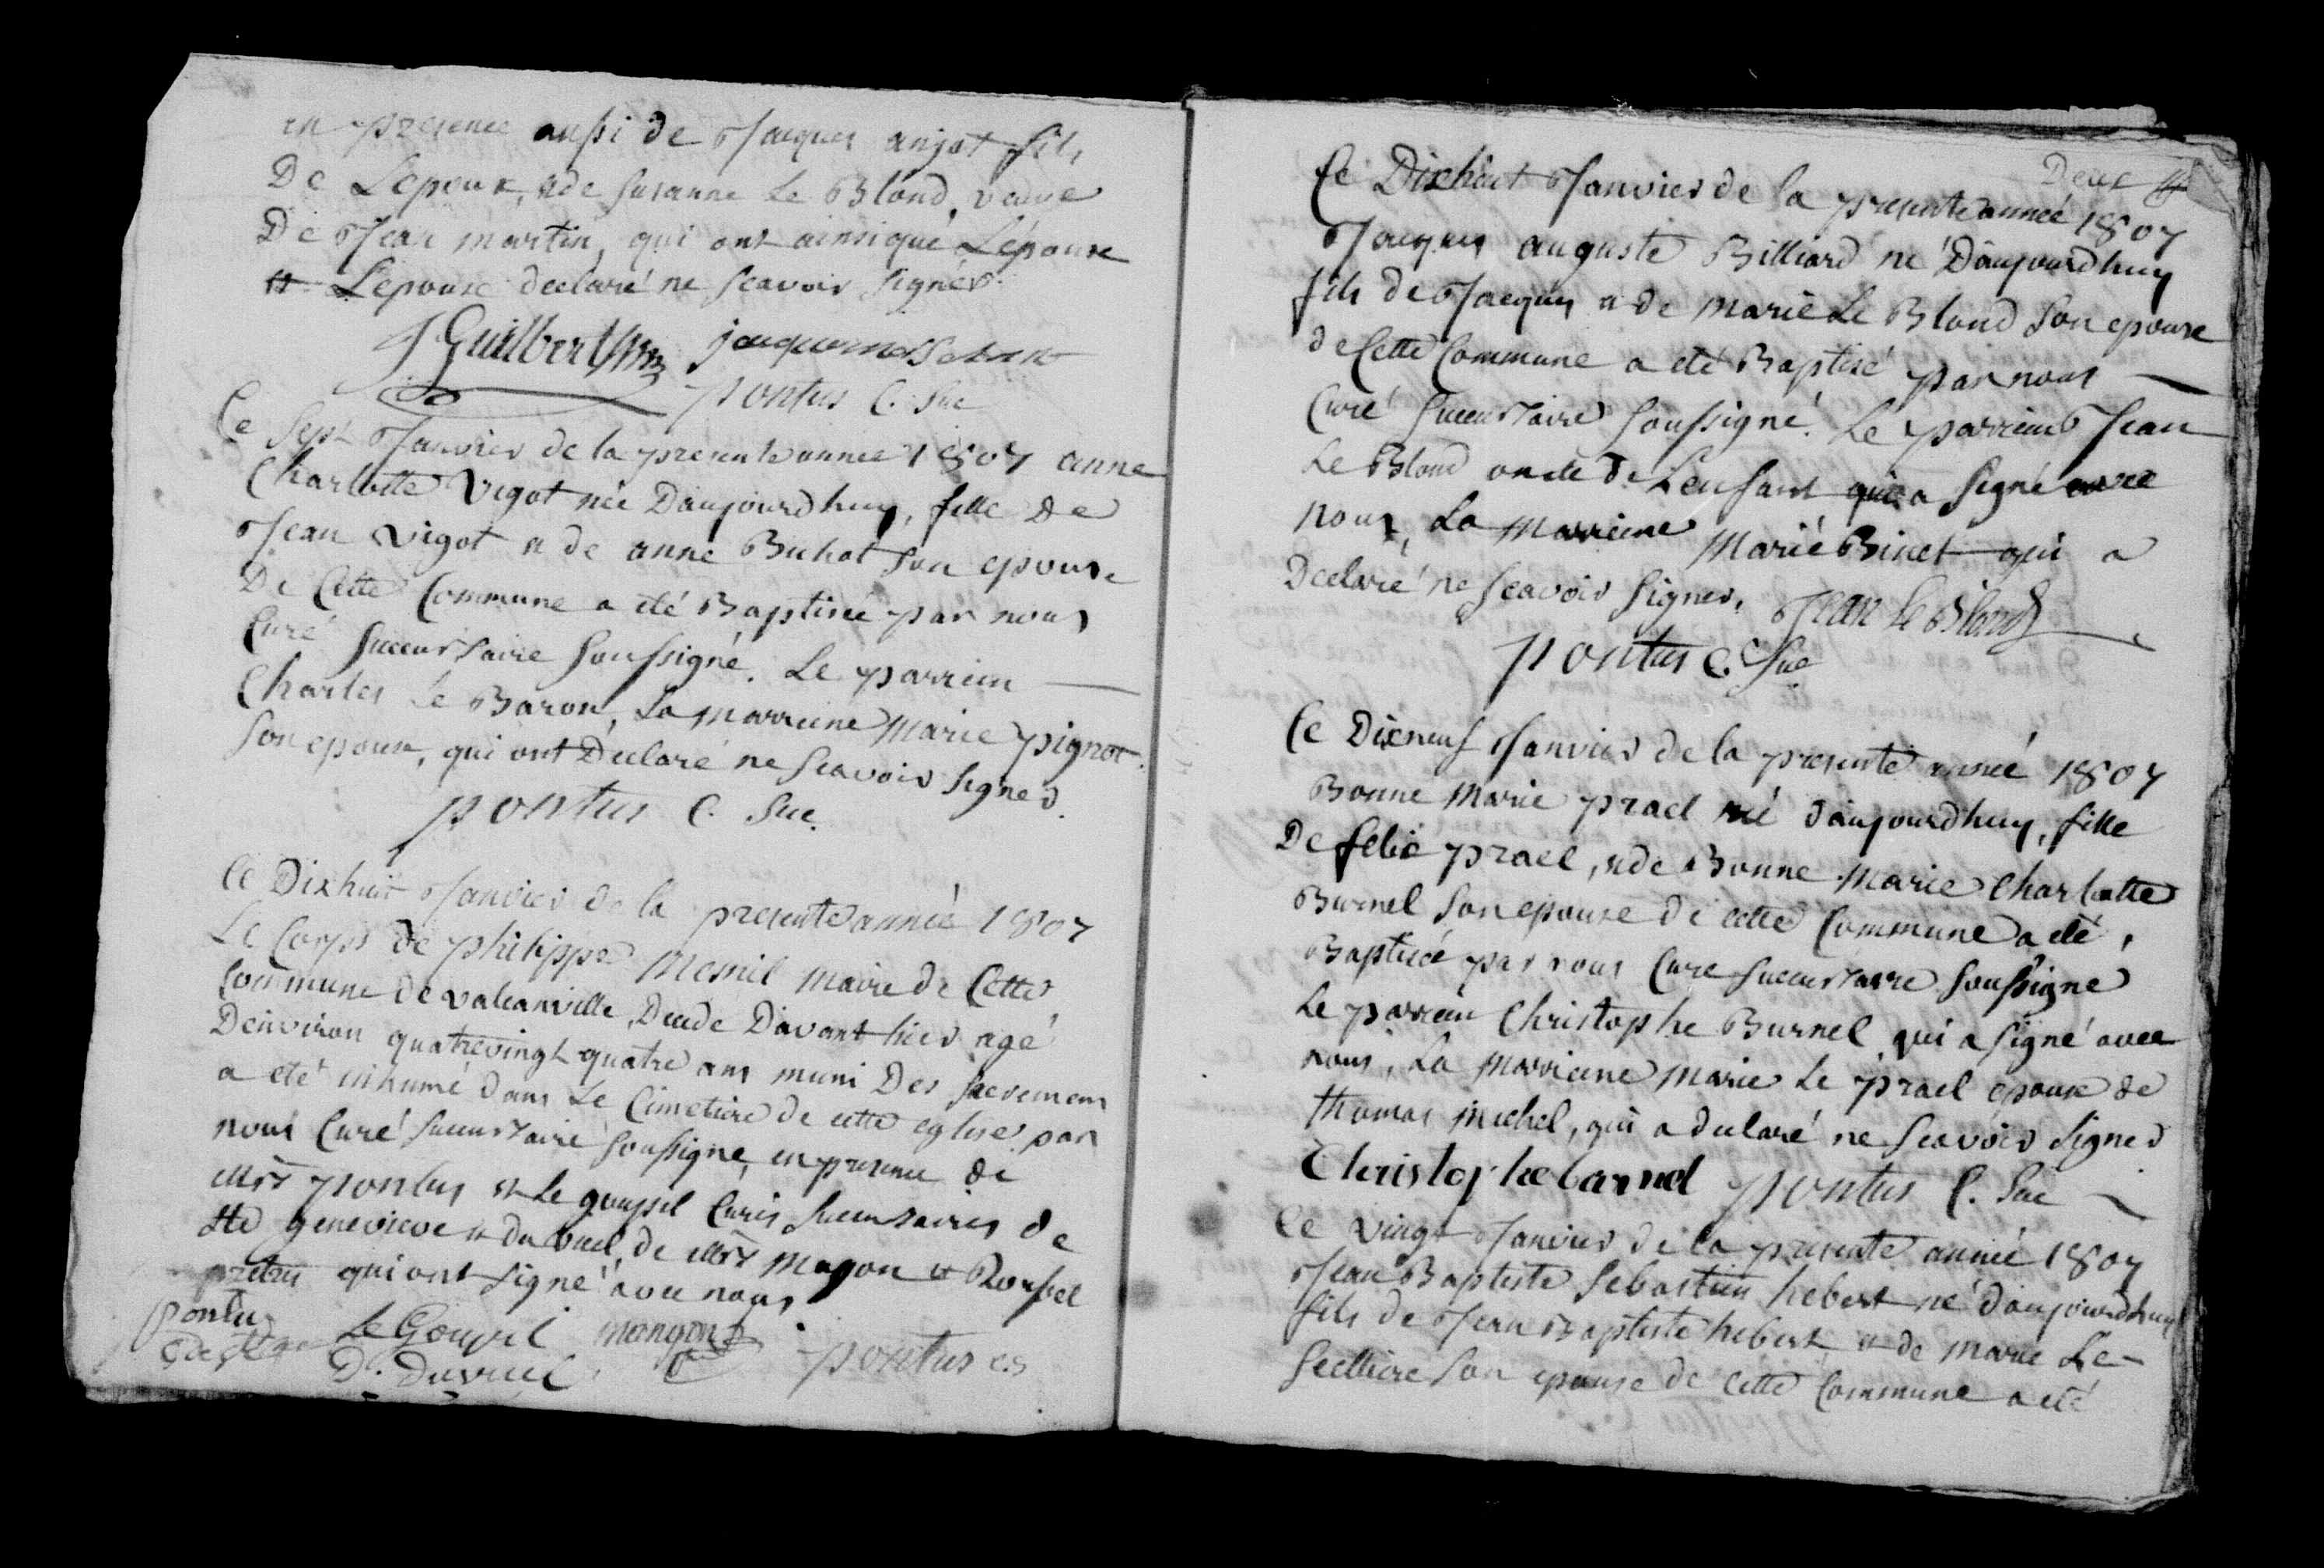 en presence aussi de Jacques anjot fils
De Lepoux, & de susanne Le Blond, veuve
De Jean martin, qui ont ainsi que Lépoux
& Lepouse declaré ne Scavoir signer.
J Guilbert
pontus C. Suc
Ce Sept Janvier de la presente année 1807 anne
Charlotte Vigot née Daujourdhuy, fille De
Jean Vigot & de anne Buhot Son epouse
De Cette Commune a été Baptisée par nous
Curé Succursaire Soussigné. Le parrein
Charles Le Baron, La marreine Marie pignot
Son epouse, qui ont Déclaré ne Scavoir signer
pontus C. Suc.
Ce Dixhuit Janvier de la presente année 1807
Le Corps de philippe Mesnil maire de Cette
Commune de valcanville, Decede Davant hier agé
Denviron quatrevingt quatre ans muni Des sacremens
a eté inhumé dans Le Cimetiere de cette eglise par
nous Curé Succursaire Soussigné, en presence de
Mrs pontus & Le goupil Curés Succursaires de
Ste genevieve & du vicel, de Mrs Magon & Roussel
pretres qui ont signé avec nous
pontus
Le Goupil mangon
D. Duvicel pontus c.s
Deux
Ce Dixhuit Janvier de la presente année 1807
Jacques auguste Billiard né Daujourdhuy
fils de Jacques & de marie Le Blond Son epouse
de Cette Commune a eté Baptisé par nous
Curé Succursaire Soussigné. Le parrein Jean
Le Blond oncle de Lenfant qui a signé avec
nous, La Marreine Marie Binet qui a
Declaré ne Scavoir signer. Jean Le Blond
pontus C. Suc
Ce Dixneuf Janvier de la presente année 1807
Bonne Marie prael né daujourdhuy, fille
De felix prael, & de Bonne Marie Charlotte
Burnel Son epouse de cette Commune a eté,
Baptisée par nous Curé Succursaire Soussigné
Le parrein Christophe Burnel qui a signé avec
nous, La Marreine Marie Le prael epouse de
thomas michel, qui a declaré ne Scavoir signer
Christophe barnel pontus C. Suc
Ce vingt Janvier de la presente année 1807
Jean Baptiste Sebastien hebert né daujourdhuy
fils de Jean Baptiste hebert & de marie Le-
Sellière Son epouse de cette Commune a eté